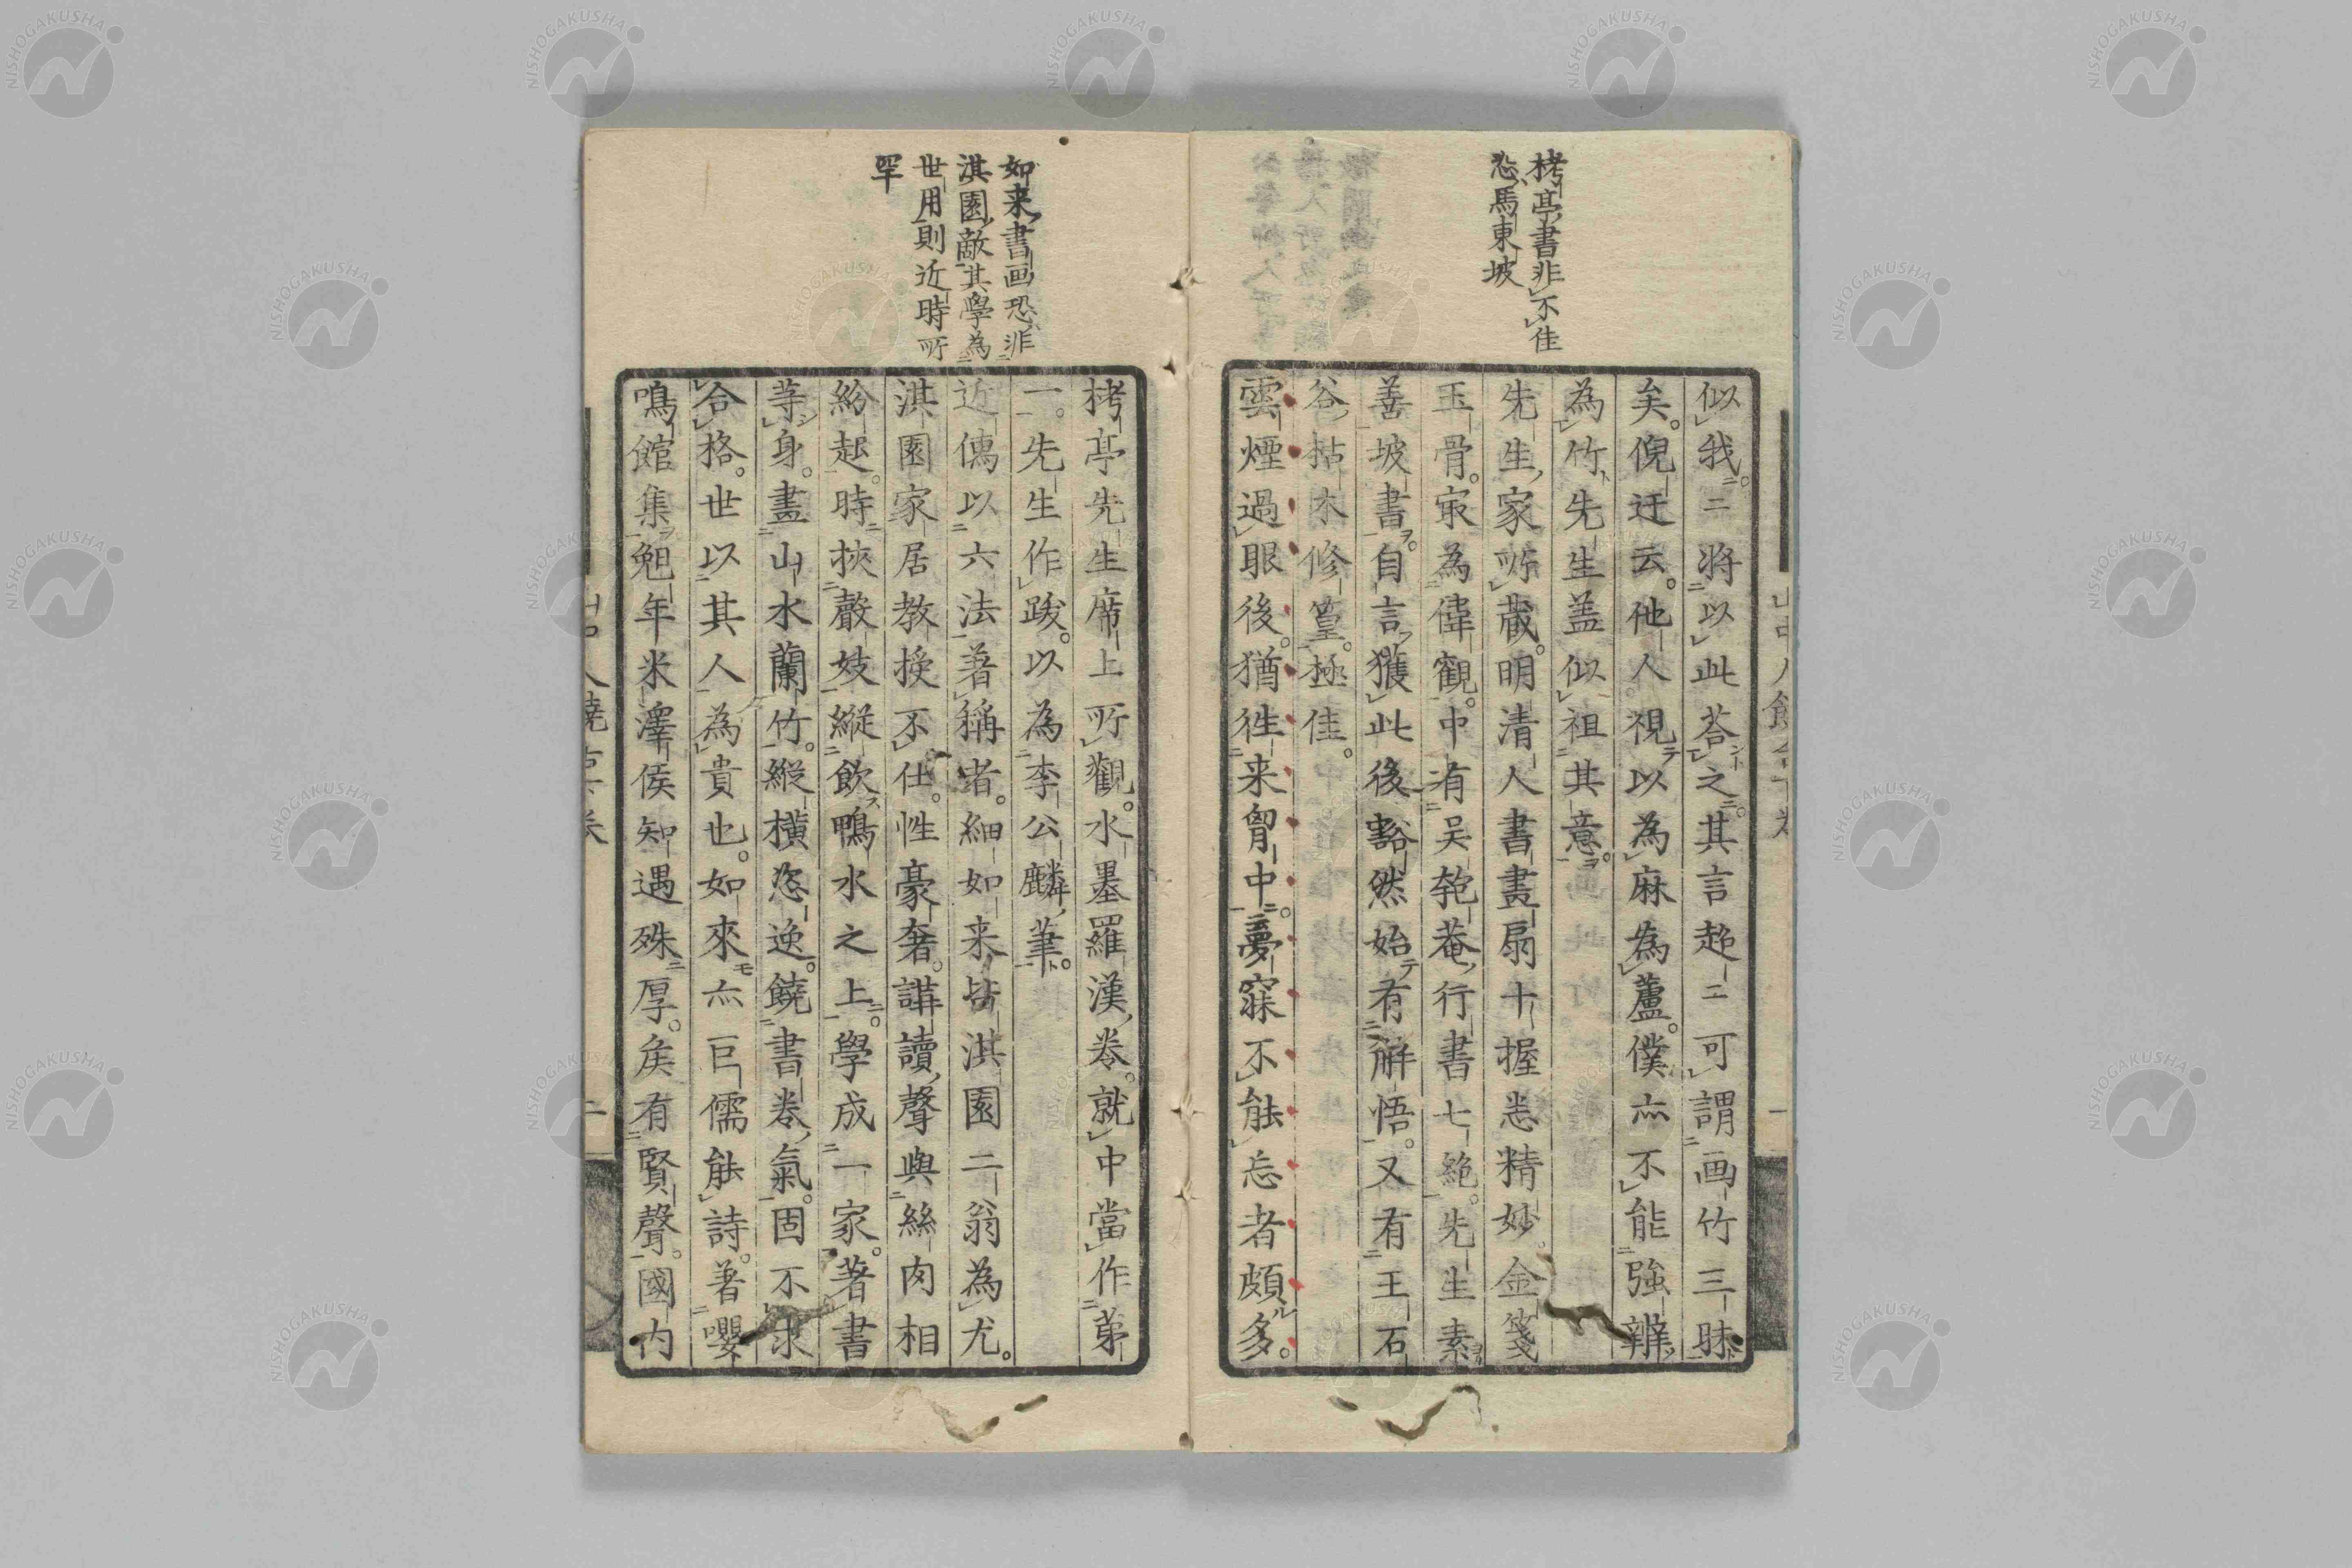 栲亭書非不佳
恐馬東坡
似我。二將以此荅之。其言超二可謂画竹三昧
矣。倪迂云。他人視以為麻為蘆。僕亦不能強辨
為竹先生盖似祖其意。
先生家所蔵。明清人書畫扇十握恙精妙。金箋
玉骨。㝡為偉觀。中有吴匏菴行書七絶。先生素
善坡書。自言獲此後豁然始有解悟。又有王石
谷枯木修篁。極佳。
雲煙過眼後。猶徃来胷中。夢寐不能忘者頗多。
如来書画恐非
淇園敵其學為
世用則近時所
罕
栲亭先生席上所觀。水墨羅漢卷。就中當作苐
一。先生作跋。以為李公麟筆。
近儁以六法著稱者。細如来皆淇園二翁為尤。
淇園家居教授不仕。性豪奢。講讀聲與絲肉相
紛起。時挾聲妓縱飲鴨水之上。學成一家。著書
等身。畫山水蘭竹。縱橫恣逸。饒書卷氣。固不求
合格。世以其人為貴也。如來亦巨儒能詩。著嚶
鳴館集。夗年米澤侯知遇殊厚。矦有賢聲。國内